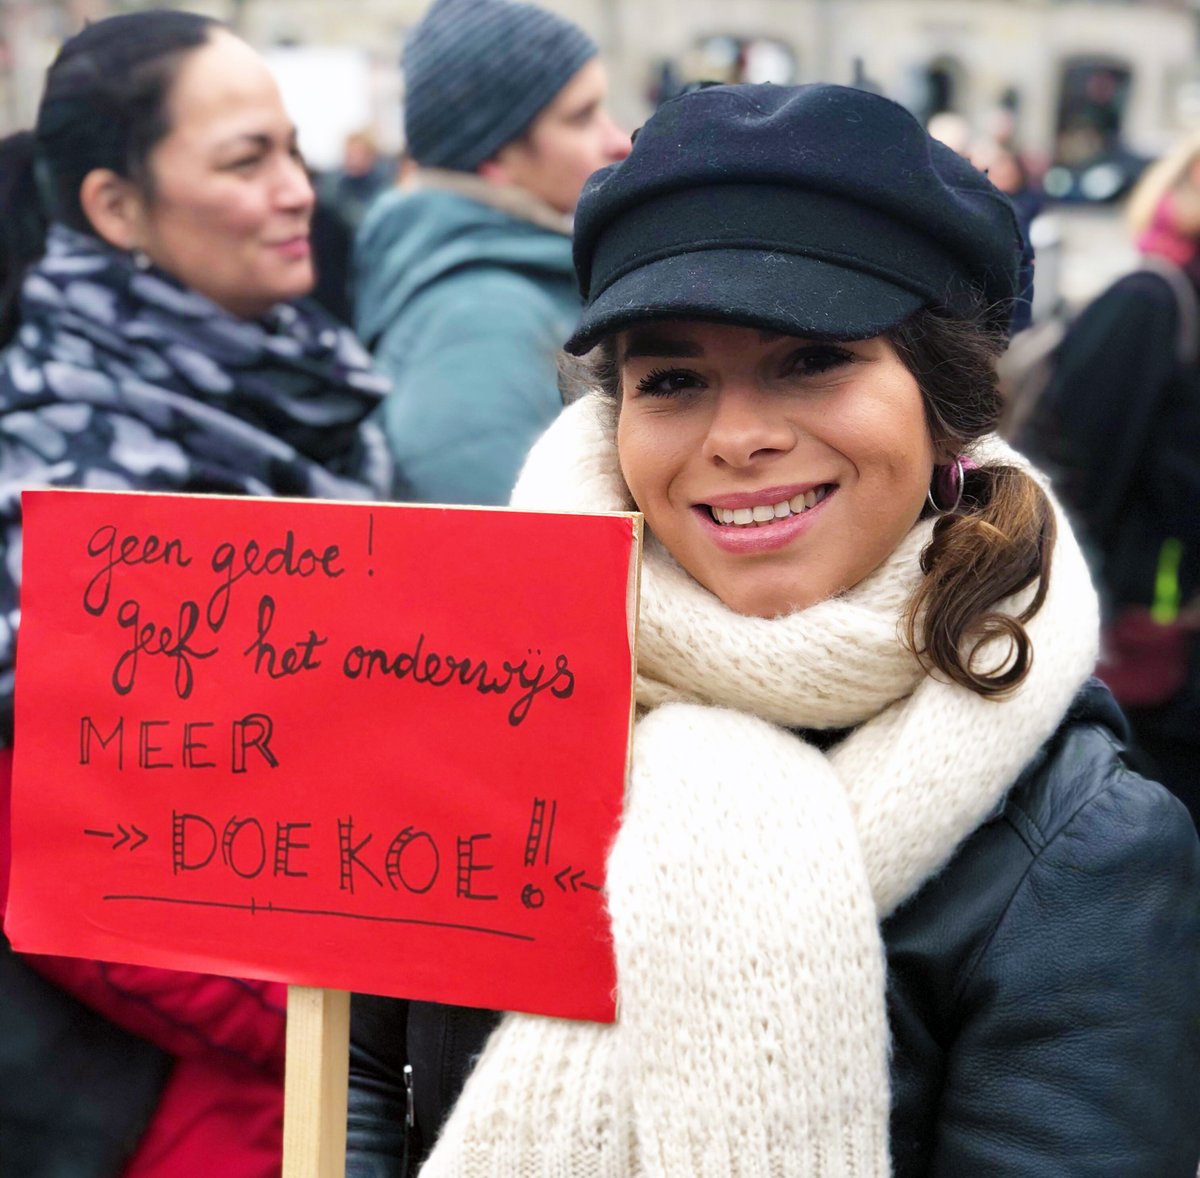 geen gedoe!
geef het onderwijs
MEER
->> DOEKOE! <<-